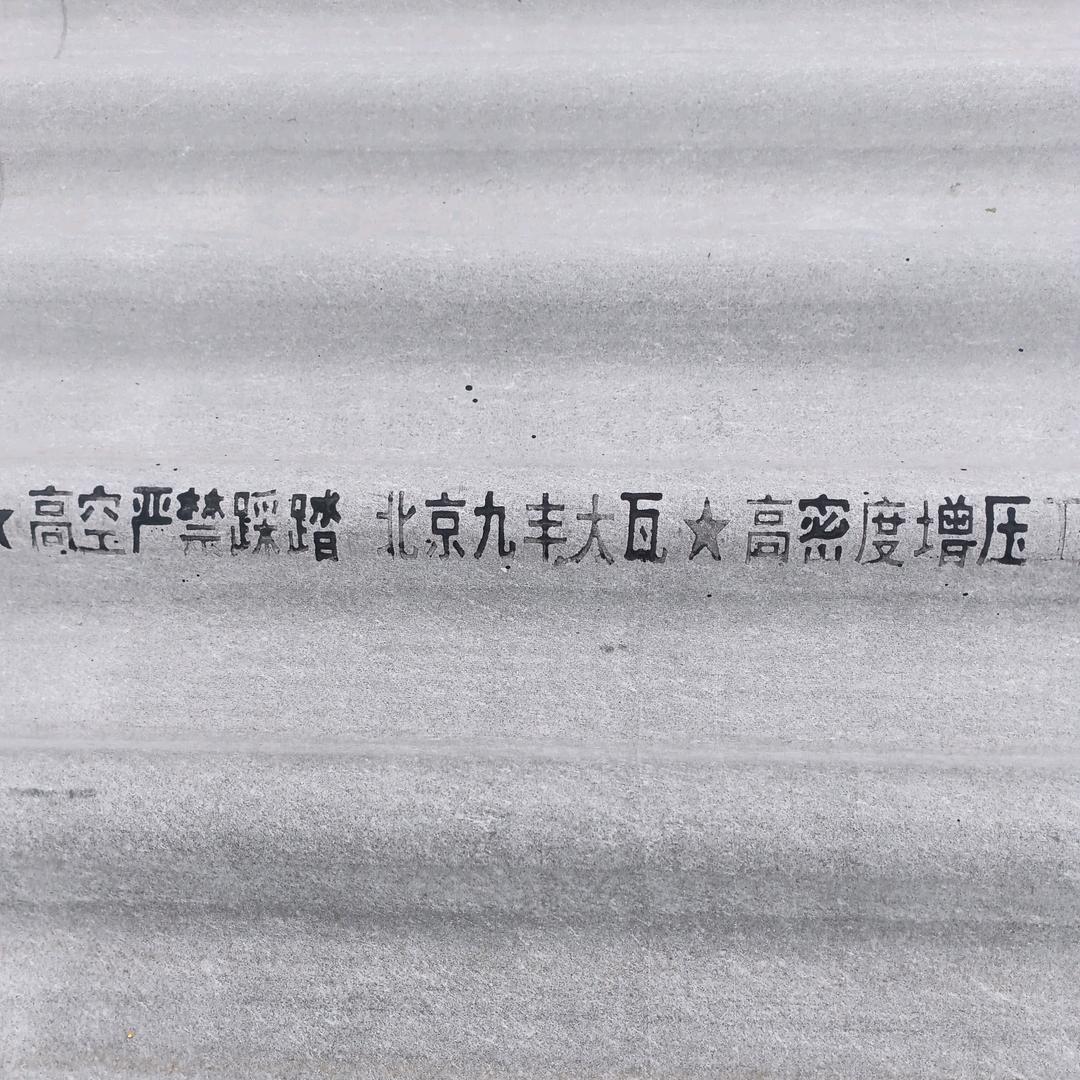 ★高空严禁踩踏 北京九丰大瓦★高密度增压